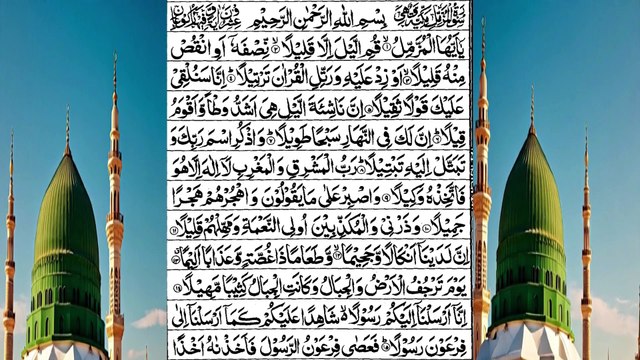 سُوْرَةُ الْمُزَّمِّلِ مَكِّيَّةٌ وَّهِيَ بِسْمِ اللّٰهِ الرَّحْمٰنِ الرَّحِيْمِ عِشْرُوْنَ اٰيَةً وَّفِيْهَا رُكُوْعَانِ
يٰۤاَيُّهَا الْمُزَّمِّلُ ۙ﴿۱﴾ قُمِ الَّيْلَ اِلَّا قَلِيْلًا ۙ﴿۲﴾ نِّصْفَهٗۤ اَوِ انْقُصْ
مِنْهُ قَلِيْلًا ۙ﴿۳﴾ اَوْ زِدْ عَلَيْهِ وَرَتِّلِ الْقُرْاٰنَ تَرْتِيْلًا ؕ﴿۴﴾ اِنَّا سَنُلْقِيْ
عَلَيْكَ قَوْلًا ثَقِيْلًا ﴿۵﴾ اِنَّ نَاشِئَةَ الَّيْلِ هِيَ اَشَدُّ وَطْاً وَّاَقْوَمُ
قِيْلًا ؕ﴿۶﴾ اِنَّ لَكَ فِي النَّهَارِ سَبْحًا طَوِيْلًا ؕ﴿۷﴾ وَاذْكُرِ اسْمَ رَبِّكَ وَ
تَبَتَّلْ اِلَيْهِ تَبْتِيْلًا ؕ﴿۸﴾ رَبُّ الْمَشْرِقِ وَالْمَغْرِبِ لَاۤ اِلٰهَ اِلَّا هُوَ
فَاتَّخِذْهُ وَكِيْلًا ﴿۹﴾ وَاصْبِرْ عَلٰى مَا يَقُوْلُوْنَ وَاهْجُرْهُمْ هَجْرًا
جَمِيْلًا ﴿۱۰﴾ وَذَرْنِيْ وَالْمُكَذِّبِيْنَ اُولِي النَّعْمَةِ وَمَهِّلْهُمْ قَلِيْلًا ﴿۱۱﴾
اِنَّ لَدَيْنَاۤ اَنْكَالًا وَّجَحِيْمًا ۙ﴿۱۲﴾ وَّطَعَامًا ذَا غُصَّةٍ وَّعَذَابًا اَلِيْمًا ﴿۱۳﴾
يَوْمَ تَرْجُفُ الْاَرْضُ وَالْجِبَالُ وَكَانَتِ الْجِبَالُ كَثِيْبًا مَّهِيْلًا ﴿۱۴﴾
اِنَّاۤ اَرْسَلْنَاۤ اِلَيْكُمْ رَسُوْلًا شَاهِدًا عَلَيْكُمْ كَمَاۤ اَرْسَلْنَاۤ اِلٰى
فِرْعَوْنَ رَسُوْلًا ؕ﴿۱۵﴾ فَعَصٰى فِرْعَوْنُ الرَّسُوْلَ فَاَخَذْنٰهُ اَخْذًا